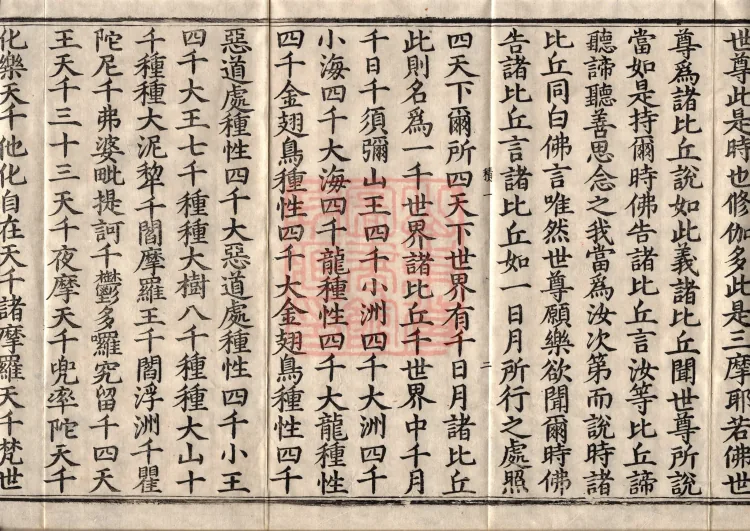 世尊此是時也修伽多此是三摩耶若佛世
尊爲諸比丘說如此義諸比丘聞世尊所說
當如是持爾時佛告諸比丘言汝等比丘諦
聽諦聽善思念之我當爲汝次第而說時諸
比丘同白佛言唯然世尊願樂欲聞爾時佛
告諸比丘言諸比丘如一日月所行之處照
四天下爾所四天下世界有千日月諸比丘
此則名爲一千世界諸比丘千世界中千月
千日千須彌山王四千小洲四千大洲四千
小海四千大海四千龍種性四千大龍種性
四千金翅鳥種性四千大金翅鳥種性四千
惡道處種性四千大惡道處種性四千小王
四千大王七千種種大樹八千種種大山十
千種種大泥犂千閻摩羅王千閻浮洲千瞿
陀尼千弗婆毗提訶千鬱多羅究留千四天
王天千三十三天千夜摩天千兜率陀天千
化樂天千他化自在天千諸摩羅天千梵世